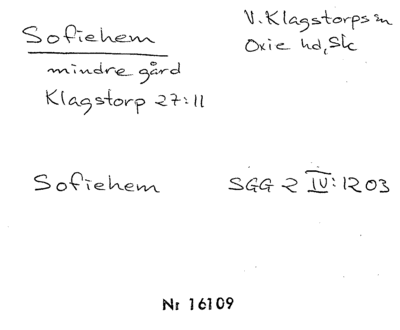 Sofiehem
V. Klagstorps sn
Oxie hd, Sk
mindre gård
Klagstorp 27:11
Sofiehem
SGG 2 IV: 1203
Nr 16109